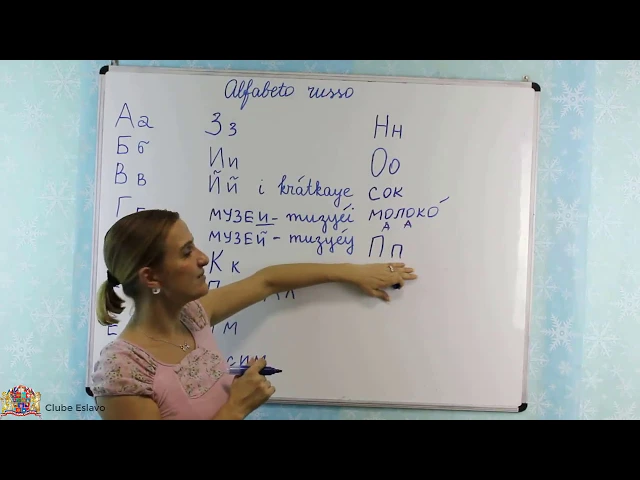 Alfabeto russo
Аа
Бб
Вв
Г
Зз
Ии
Йй i krátkaye
музеи - muzyéi
музей - muzyéy
Кк
м
сим
Нн
Оо
сок
молоко́
А А
Пп
Clube Eslavo